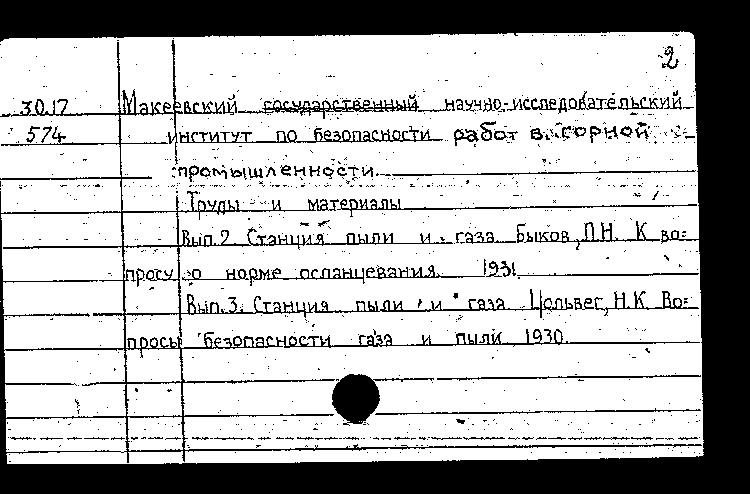 2
30.17 Макеевский государственный научно-исследовательский
574 институт по безопасности работ в горной
промышленности.
Труды и материалы
Вып.2. Станция пыли и газа Быков, Л.Н. К во=
просу о норме осланцевания. 1931.
Вып.3. Станция пыли и газа Цольвег, Н.К. Во=
просы безопасности газа и пыли 1930.